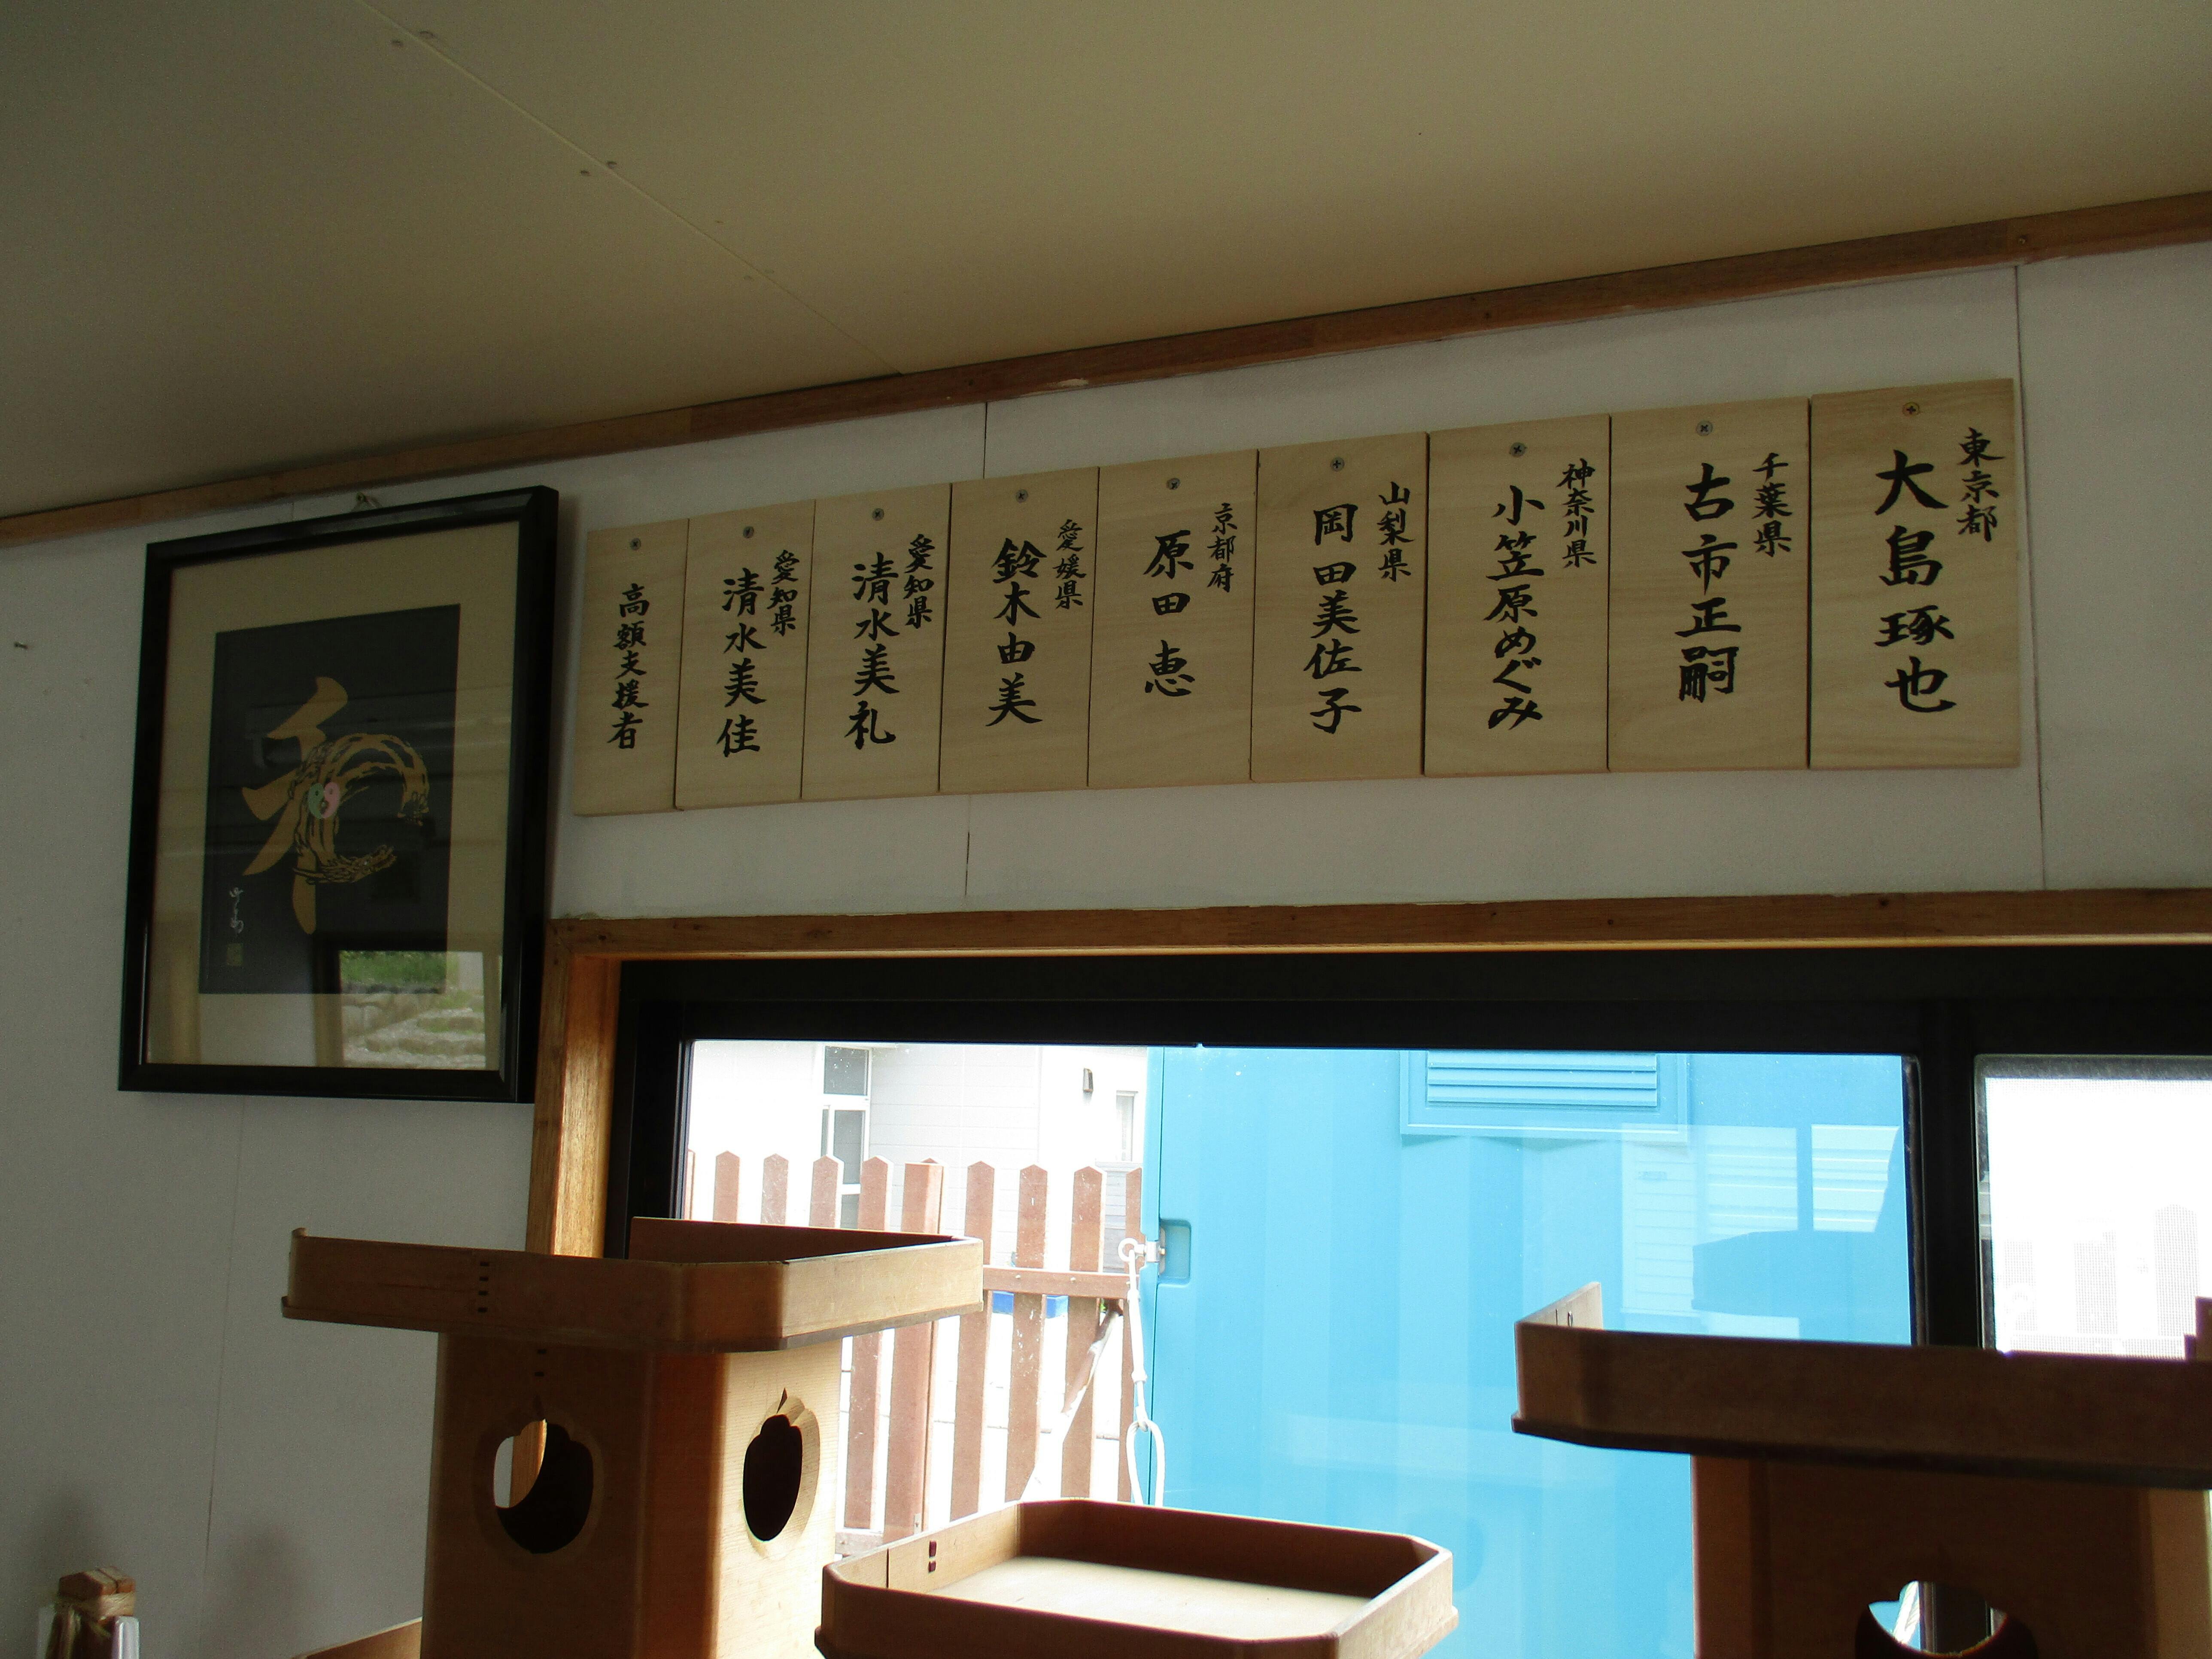 東京都
大島琢也
千葉県
古市正嗣
神奈川県
小笠原めぐみ
山梨県
岡田美佐子
京都府
原田恵
愛媛県
鈴木由美
愛知県
清水美礼
愛知県
清水美佳
高額支援者
和